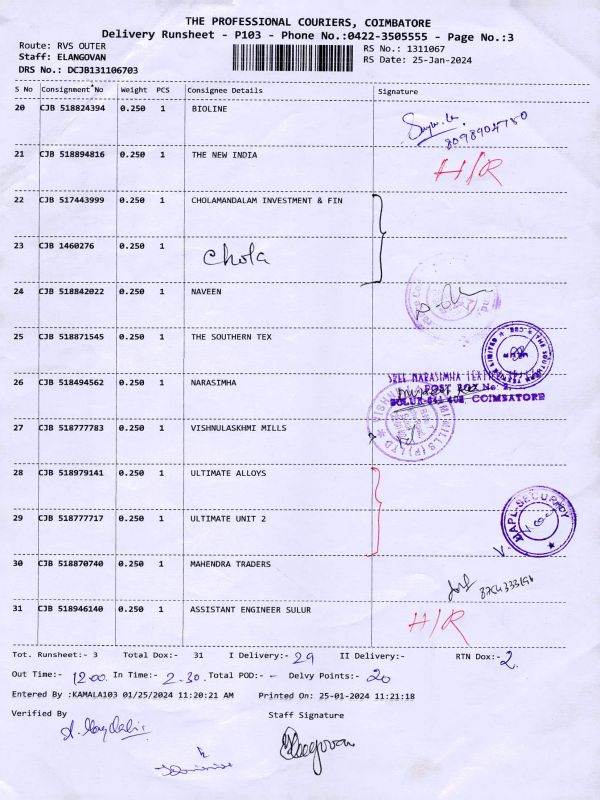 THE PROFESSIONAL COURIERS, COIMBATORE
Delivery Runsheet - P103 - Phone No.:0422-3505555 - Page No.:3
Route: RVS OUTER RS No.: 1311067
Staff: ELANGOVAN RS Date: 25-Jan-2024
DRS No.: DCJB131106703
S No Consignment No Weight PCS Consignee Details Signature
20 CJB 518824394 0.250 1 BIOLINE
21 CJB 518894816 0.250 1 THE NEW INDIA H/R
22 CJB 517443999 0.250 1 CHOLAMANDALAM INVESTMENT & FIN
23 CJB 1460276 0.250 1 Chola
24 CJB 518842022 0.250 1 NAVEEN
25 CJB 518871545 0.250 1 THE SOUTHERN TEX
26 CJB 518494562 0.250 1 NARASIMHA
SREE NARASIMHA
POST BOX No. 2,
SULUR-641 402, COIMBATORE
27 CJB 518777783 0.250 1 VISHNULASKHMI MILLS
28 CJB 518979141 0.250 1 ULTIMATE ALLOYS
29 CJB 518777717 0.250 1 ULTIMATE UNIT 2
MAPL-SECURITY
30 CJB 518870740 0.250 1 MAHENDRA TRADERS
31 CJB 518946140 0.250 1 ASSISTANT ENGINEER SULUR H/R
Tot. Runsheet:- 3 Total Dox:- 31 I Delivery:- 29 II Delivery:- RTN Dox:- 2
Out Time:- 12.00. In Time:- 2.30. Total POD:- - Delvy Points:- 20
Entered By :KAMALA103 01/25/2024 11:20:21 AM Printed On: 25-01-2024 11:21:18
Verified By Staff Signature
Elangovan